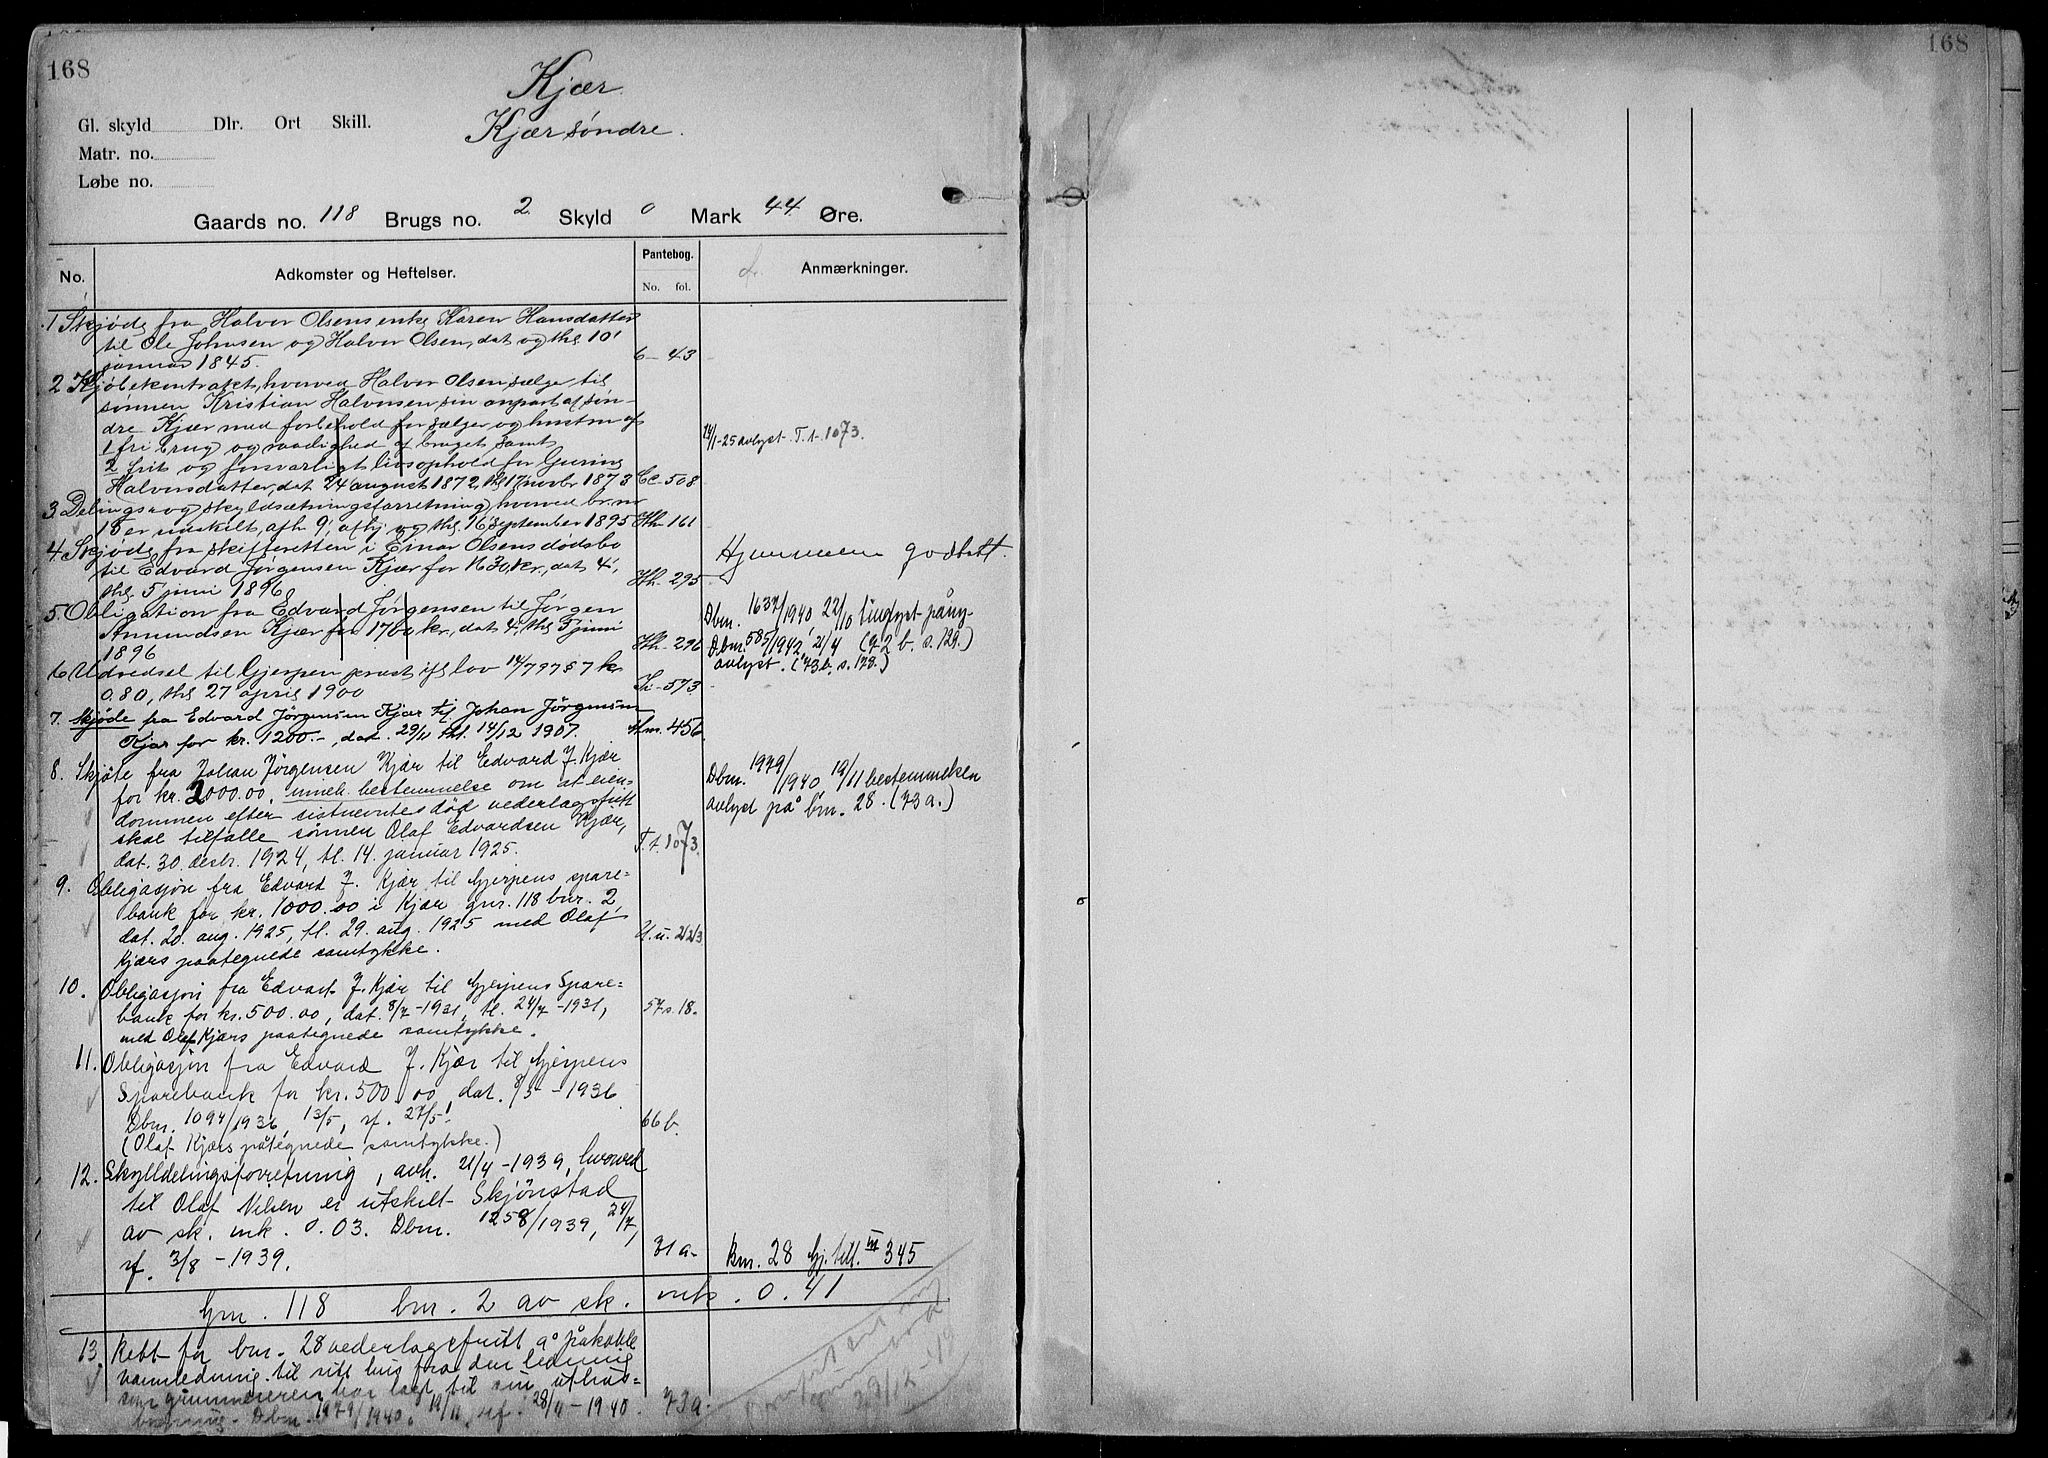 168
168
Kjær
Kjær søndre.
Gl. skyld Dlr. Ort Skill.
Matr. no.
Løbe no.
Gaards no. 118 Brugs no. 2. Skyld 0 Mark 44 Øre.
No. Adkomster og Heftelser. Pantebog. No. fol. Anmærkninger.
1 Skjøde fra Halvor Olsens enke Karen Hansdatter
til Ole Johnsen og Halvor Olsen, dat og thl 10'
januar 1845. 6 - 43
2 Kjøbekontrakt, hvorved Halvor Olsen sælger til
sønnen Kristian Halvorsen sin anpart af søn-
dre Kjær med forbehold for sælger og hustru af
1 fri brug og raadighed af bruget samt 14/1-25 avlyst T. t. 1073.
2 frit og forsvarligt livsophold for Guring
Halvorsdatter, dat 24 august 1872, thl 17 novbr 1873 Cc - 508
3. Delings- og skyldsætningsforretning, hvorved br. nr
18 er udskilt, afh 9', afhj og thl 16' september 1895 Hh 161
4 Skjøde fra skifteretten i Einar Olsens dødsbo Hjemmelen godtatt.
til Edvard Jørgensen Kjær for 1630, kr., dat 4',
thl 5 juni 1896 Hh - 295
5. Obligation fra Edvard Jørgensen til Jørgen Dbnr. 1637/1940, 22/10 tinglyst påny
Amundsen Kjær for 1760 kr., dat 4', thl 5 juni (72 b. s. 129.)
1896 Hh - 296 Dbnr. 585/1942, 21/4
avlyst. (73 b. s. 178.)
6 Udredsel til Gjerpen prest ifl lov 14/7 97 § 7 kr
0.80, thl 27 april 1900 Ii - 573.
7. Skjøde fra Edvard Jörgensen Kjær til Johan Jörgensen
Kjær for kr. 1200.-, dat. 29/11 thl. 14/12 1907. Mm. 456
8. Skjøte fra Johan Jørgensen Kjær til Edvard J. Kjær Dbnr. 1979/1940, 19/11 bestemmelsen
for kr. 2000.00, inneh. bestemmelse om at eien- avlyst på bnr. 28. (73 a.)
dommen efter sistnevntes död vederlagsfritt
skal tilfalle sönnen Olaf Edvardsen Kjær,
dat. 30. desbr. 1924, tl. 14. januar 1925. T. t. 1073.
9. Obligasjon fra Edvard J. Kjær til Gjerpens spare-
bank for kr. 1000.00 i Kjær gnr. 118 bnr. 2,
dat. 20. aug. 1925, tl. 29. aug. 1925 med Olaf U. u. 223
Kjærs paategnede samtykke.
10. Obligasjon fra Edvart J. Kjær til Gjerpens Spare-
bank for kr. 500.00, dat. 8/7 - 1931, tl. 24/7 - 1931, 57 s. 18.
med Olaf Kjærs paategnede samtykke.
11. Obligasjon fra Edvard J. Kjær til Gjerpens
Sparebank for kr. 500.00, dat. 8/5 - 1936
Dbnr. 1094/1936, 13/5, rf. 27/5! 66 b.
(Olaf Kjærs påtegnede samtykke.)
12. Skylddelingsforretning, avh. 21/4 - 1939, hvorved
til Olaf Nilsen er utskilt Skjönstad
av sk. mk. 0.03. Dbnr. 1258/1939, 24/7,
rf. 3/8 - 1939. 31 a. Bnr. 28 Gj. till. III 345
Gnr. 118 bnr. 2 av sk. mk. 0.41
13. Rett for bnr. 28 vederlagsfritt å påkoble
vannledning til sitt hus fra den ledning
som grunneieren har lagt til sin uthus-
bygning. Dbnr. 1979/1940, 19/11, rf. 28/11 - 1940. 73 a.